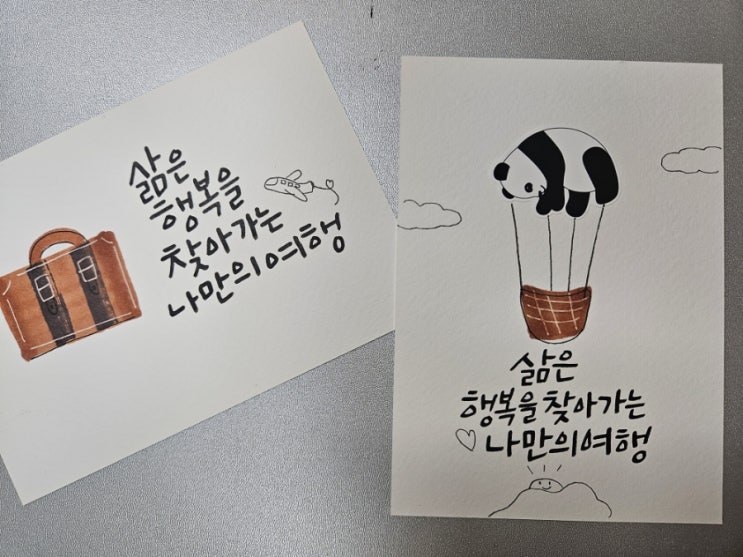 삶은
행복을
찾아가는
나만의여행
삶은
행복을 찾아가는
나만의여행